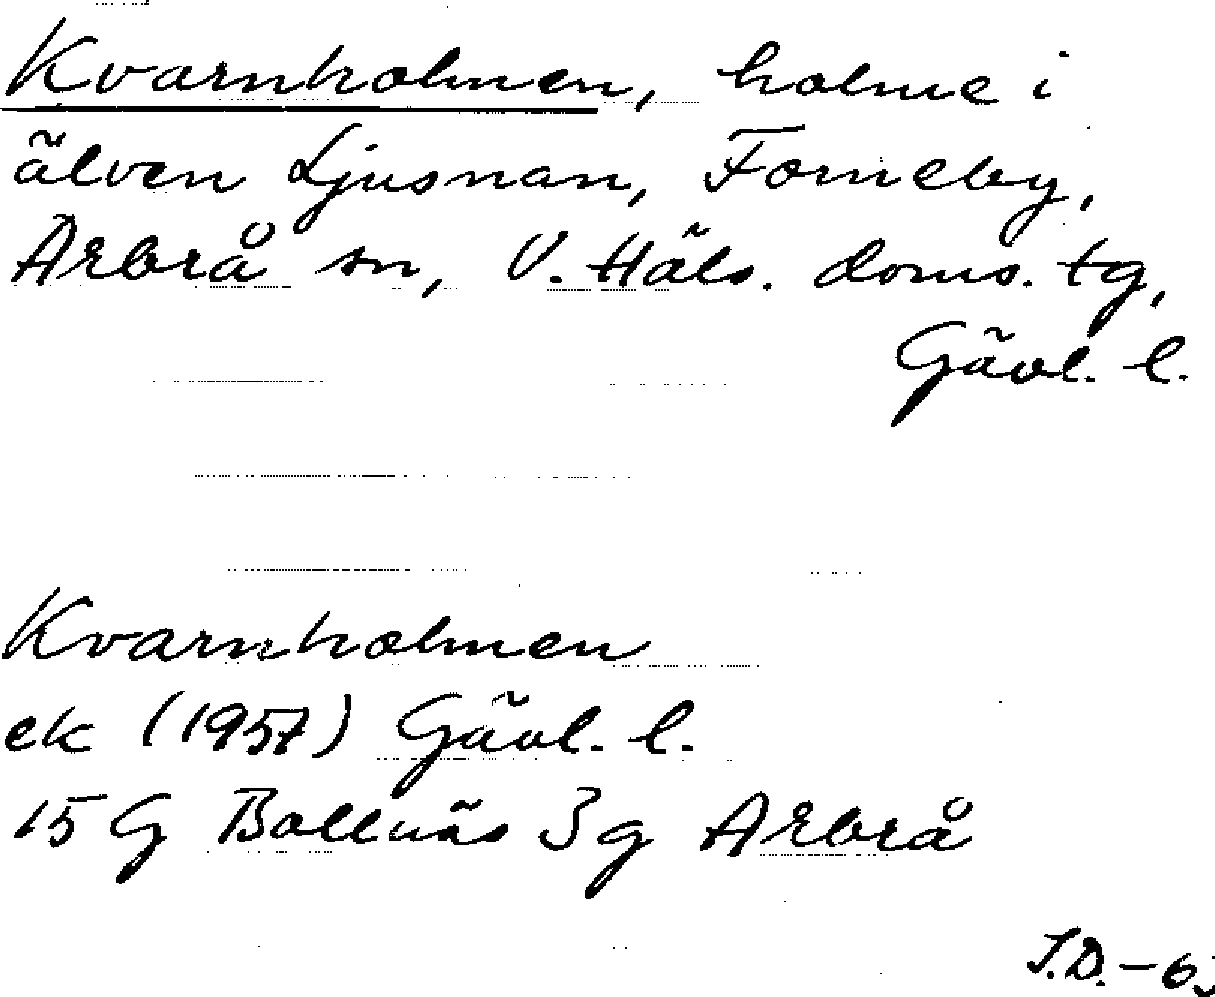 Kvarnholmen, holme i
älven Ljusnan, Forneby,
Arbrå sn, V. Häls. doms. tg,
Gävl. l.
Kvarnholmen
ek (1957) Gävl. l.
15 G Bollnäs 3 g Arbrå
J.D.